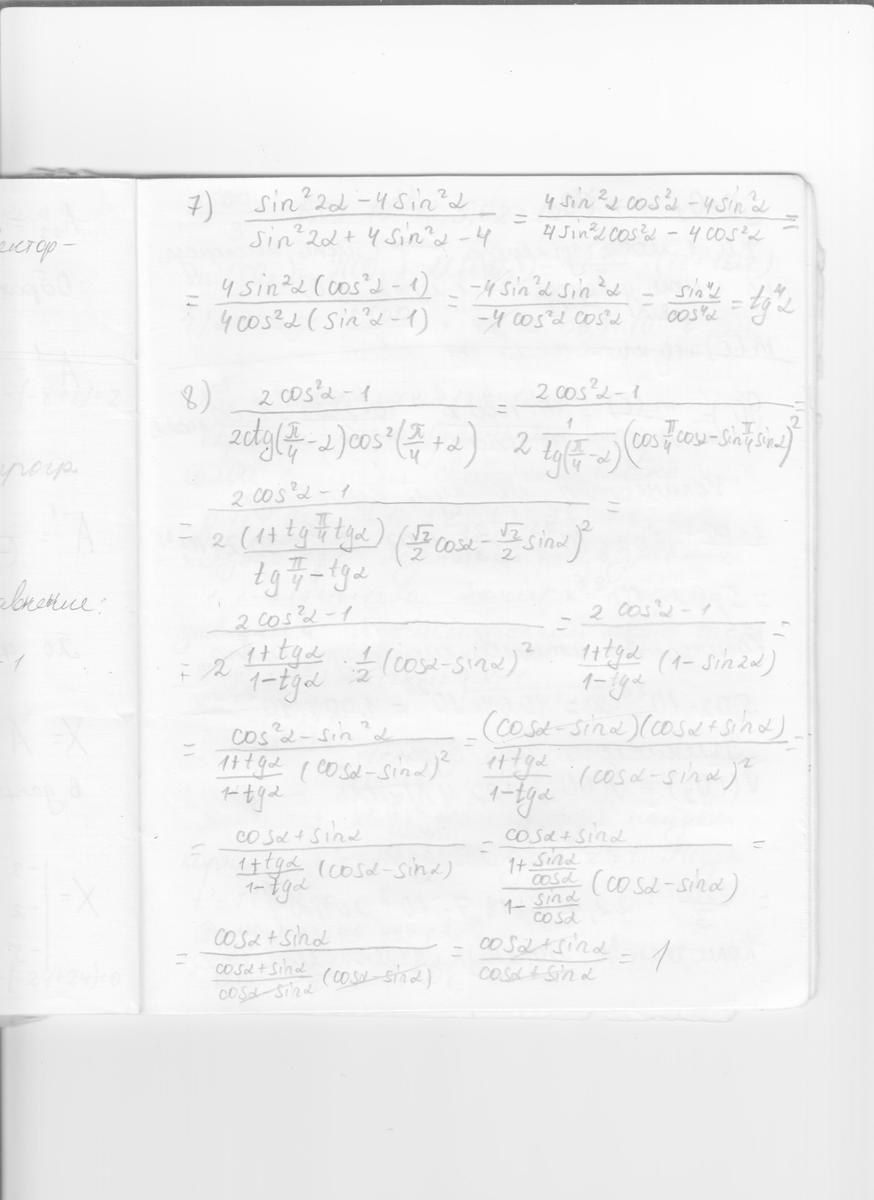 7) (sin²2α − 4sin²α)/(sin²2α + 4sin²α − 4) = (4sin²α cos²α − 4sin²α)/(4sin²α cos²α − 4cos²α) =
= (4sin²α(cos²α − 1))/(4cos²α(sin²α − 1)) = (−4sin²α sin²α)/(−4cos²α cos²α) = sin⁴α/cos⁴α = tg⁴α
8) (2cos²α − 1)/(2ctg(π/4 − α)cos²(π/4 + α)) = (2cos²α − 1)/(2 1/tg(π/4 − α) (cos π/4 cosα − sin π/4 sinα)²) =
= (2cos²α − 1)/(2 (1 + tg π/4 tgα)/(tg π/4 − tgα) (√2/2 cosα − √2/2 sinα)²) =
= (2cos²α − 1)/(2 (1 + tgα)/(1 − tgα) · 1/2 (cosα − sinα)²) = (2cos²α − 1)/((1 + tgα)/(1 − tgα) (1 − sin2α)) =
= (cos²α − sin²α)/((1 + tgα)/(1 − tgα) (cosα − sinα)²) = ((cosα − sinα)(cosα + sinα))/((1 + tgα)/(1 − tgα) (cosα − sinα)²) =
= (cosα + sinα)/((1 + tgα)/(1 − tgα) (cosα − sinα)) = (cosα + sinα)/((1 + sinα/cosα)/(1 − sinα/cosα) (cosα − sinα)) =
= (cosα + sinα)/((cosα + sinα)/(cosα − sinα) (cosα − sinα)) = (cosα + sinα)/(cosα + sinα) = 1